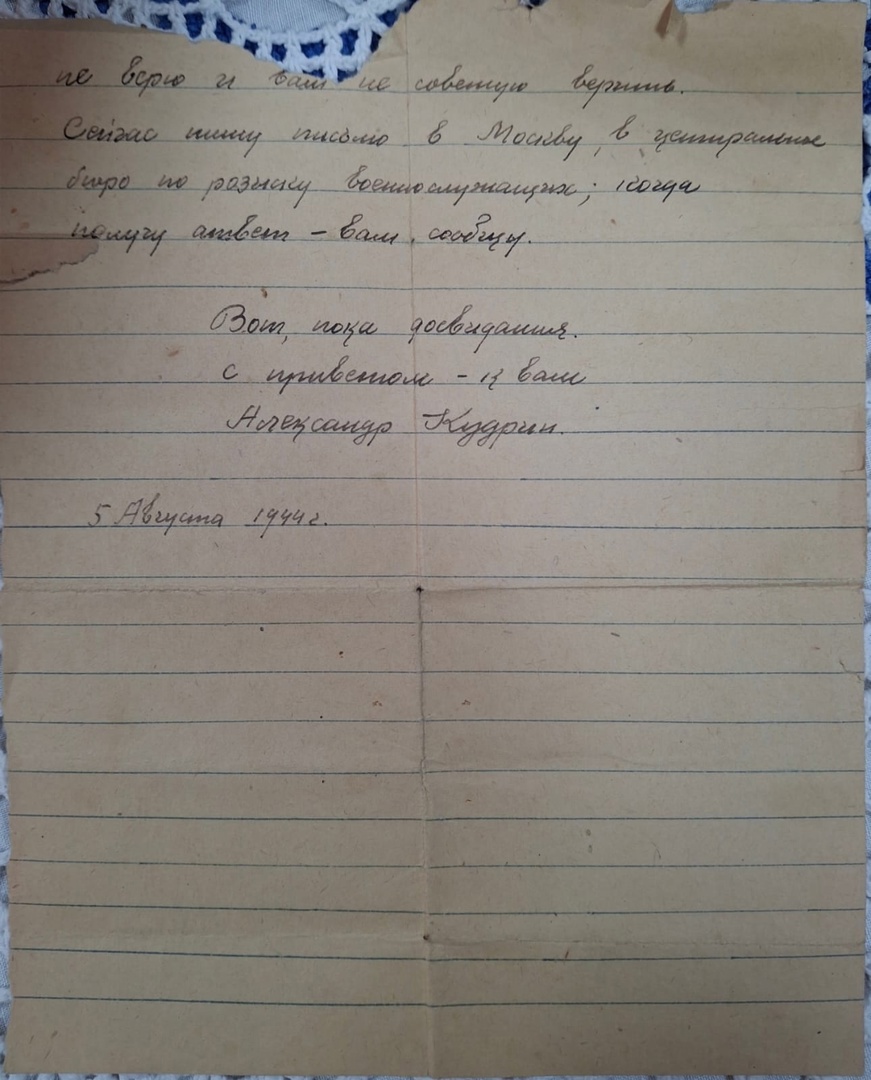 не верю и вам не советую верить.
Сейчас пишу письмо в Москву, в центральное
бюро по розыску военнослужащих; когда
получу ответ – вам сообщу.
Вот, пока досвидания.
с приветом – к вам
Александр Кудрин.
5 Августа 1944 г.